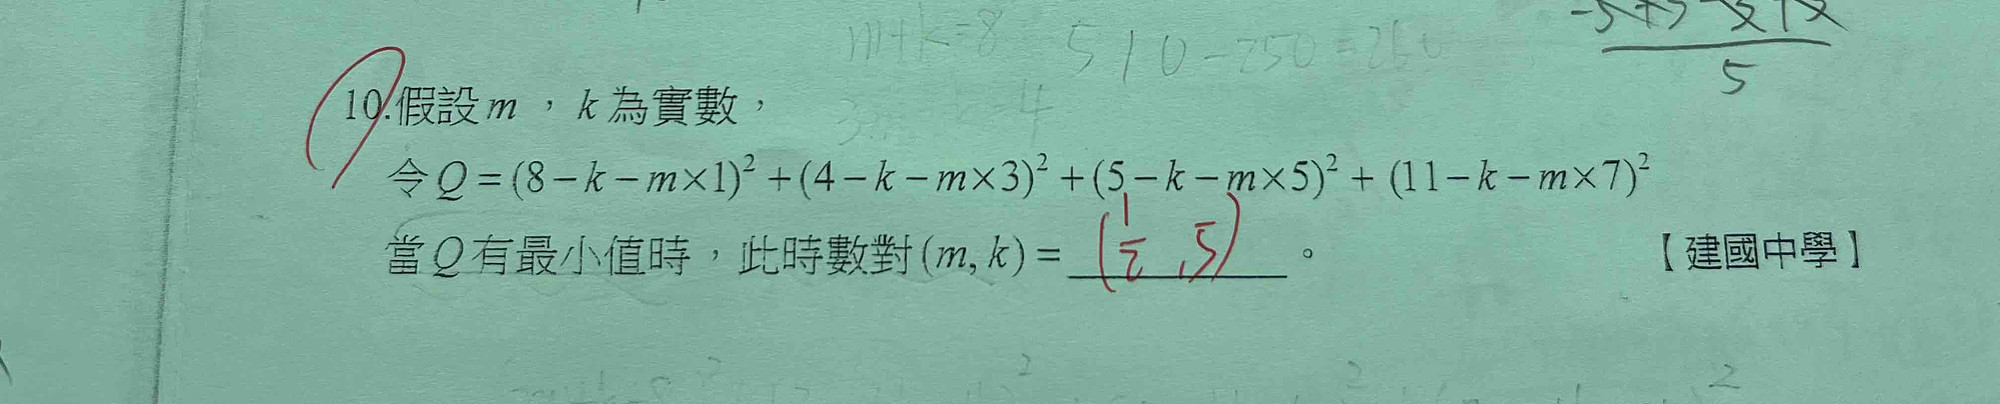 m+k=8 510-250=260
5
10.假設m,k為實數,
令Q=(8-k-m×1)²+(4-k-m×3)²+(5-k-m×5)²+(11-k-m×7)²
當Q有最小值時,此時數對(m,k)=(1/2,5)。【建國中學】